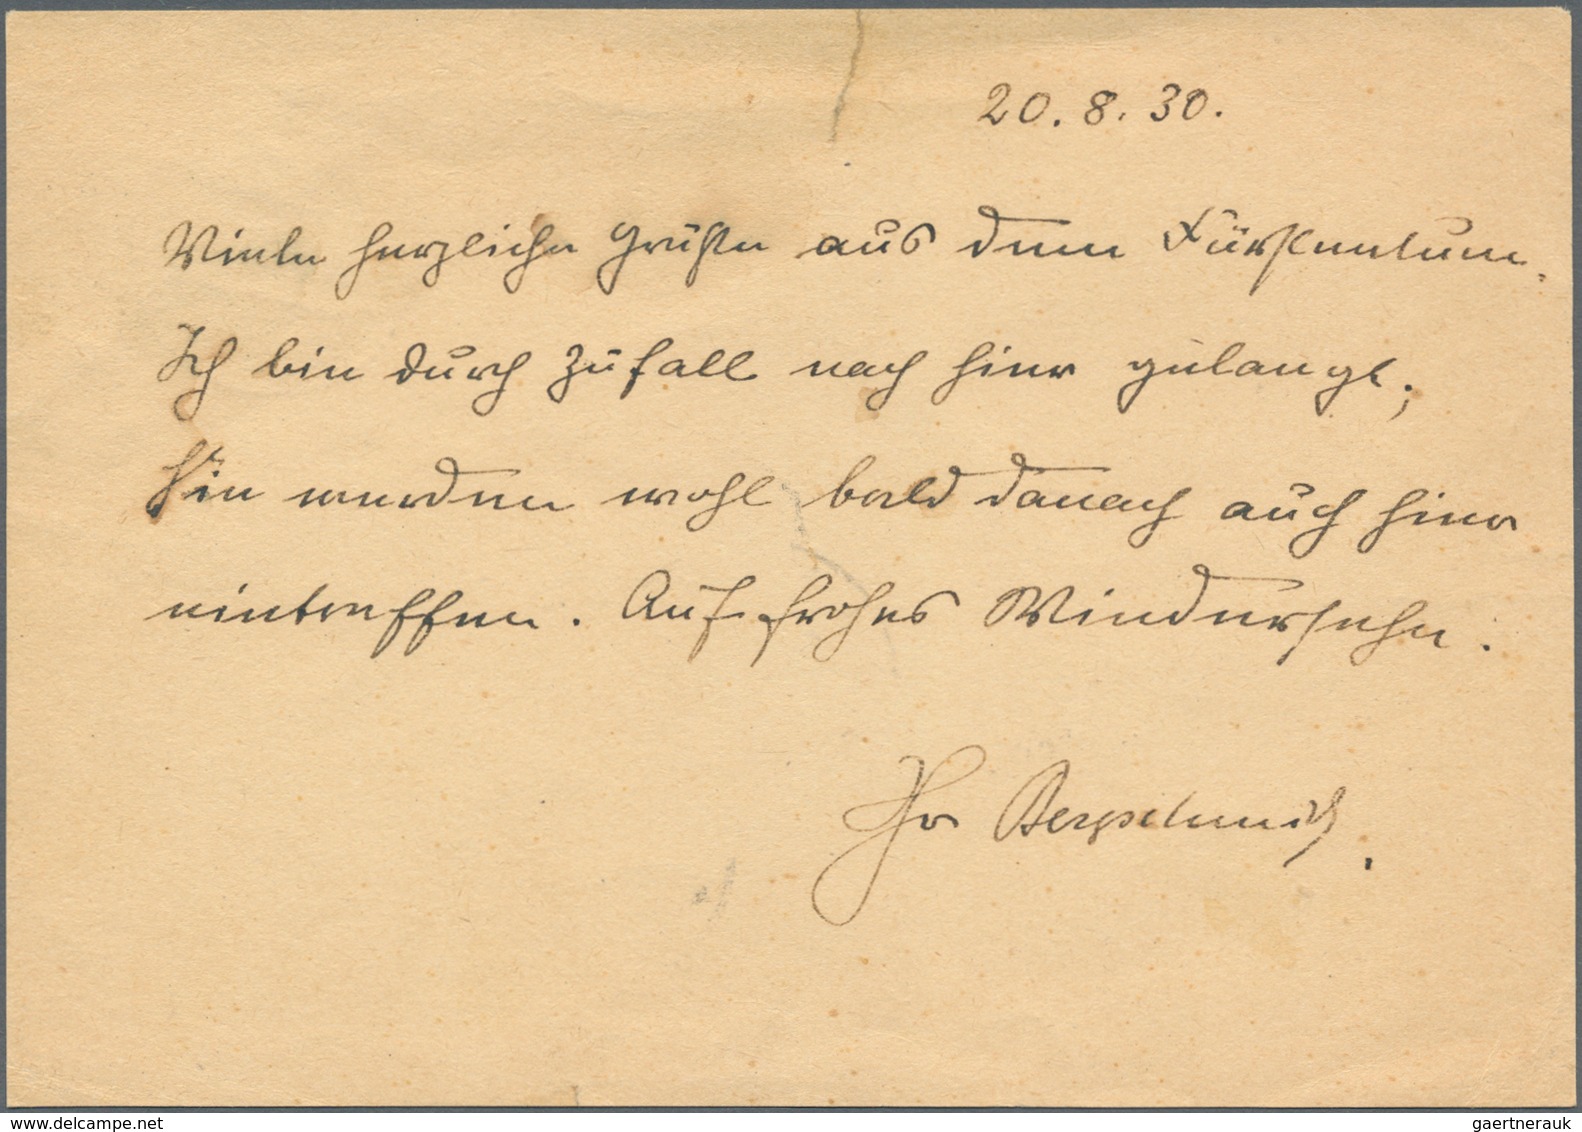 20. 8. 30.
Viele herzliche Grüße aus dem Fürstentum.
Ich bin durch Zufall nach hier gelangt;
Sie werden wohl bald danach auch hier
eintreffen. Auf frohes Wiedersehn.
Ihr
the-best-of-philately.com
gaertnerauk